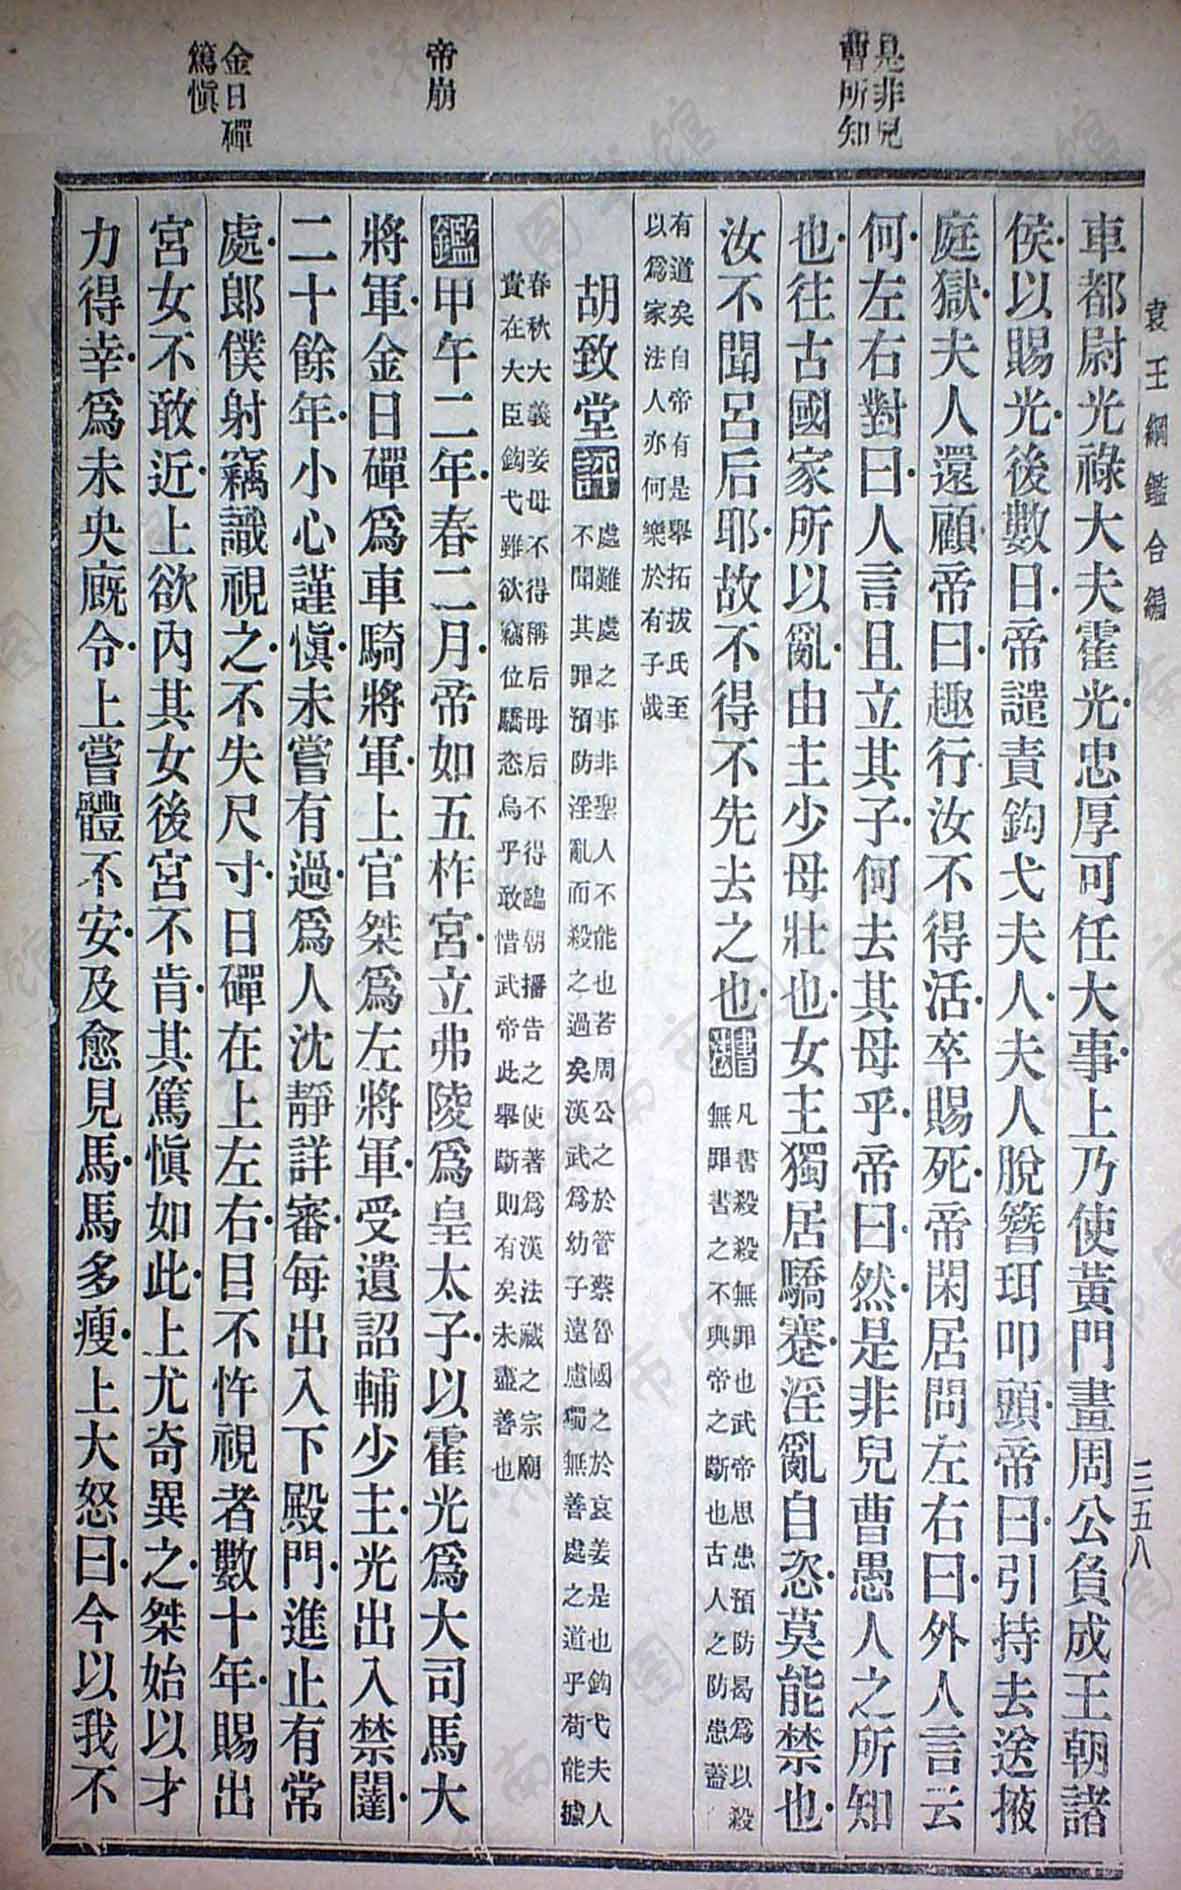 是非兒
曹所知
帝崩
金日磾
篤愼
袁王綱鑑合編
三五八
車都尉光祿大夫霍光忠厚可任大事上乃使黃門畫周公負成王朝諸
侯以賜光後數日帝譴責鈎弋夫人夫人脫簪珥叩頭帝曰引持去送掖
庭獄夫人還顧帝曰趣行汝不得活卒賜死帝閑居問左右曰外人言云
何左右對曰人言且立其子何去其母乎帝曰然是非兒曹愚人之所知
也往古國家所以亂由主少母壯也女主獨居驕蹇淫亂自恣莫能禁也
汝不聞呂后耶故不得不先去之也書法
凡書殺殺無罪也武帝思患預防曷爲以殺
無罪書之不與帝之斷也古人之防患蓋
有道矣自帝有是舉拓拔氏至
以爲家法人亦何樂於有子哉
胡致堂評
處難處之事非聖人不能也若周公之於管蔡魯國之於哀姜是也鈎弋夫人
不聞其罪預防淫亂而殺之過矣漢武爲幼子遠慮獨無善處之道乎苟能據
春秋大義妾母不得稱后母后不得臨朝播告之使著爲漢法藏之宗廟
責在大臣鈎弋雖欲竊位驕恣烏乎敢惜武帝此舉斷則有矣未盡善也
鑑甲午二年春二月帝如五柞宮立弗陵爲皇太子以霍光爲大司馬大
將軍金日磾爲車騎將軍上官桀爲左將軍受遺詔輔少主光出入禁闥
二十餘年小心謹愼未嘗有過爲人沈靜詳審每出入下殿門進止有常
處郞僕射竊識視之不失尺寸日磾在上左右目不忤視者數十年賜出
宮女不敢近上欲內其女後宮不肯其篤愼如此上尤奇異之桀始以才
力得幸爲未央廐令上嘗體不安及愈見馬馬多瘦上大怒曰今以我不